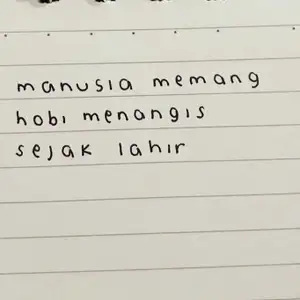 manusia memang
hobi menangis
sejak lahir